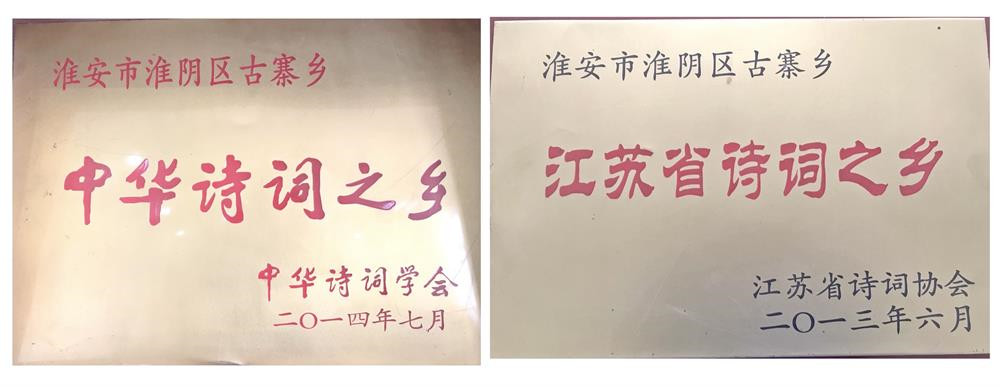 淮安市淮阴区古寨乡
中华诗词之乡
中华诗词学会
二〇一四年七月
淮安市淮阴区古寨乡
江苏省诗词之乡
江苏省诗词协会
二〇一三年六月